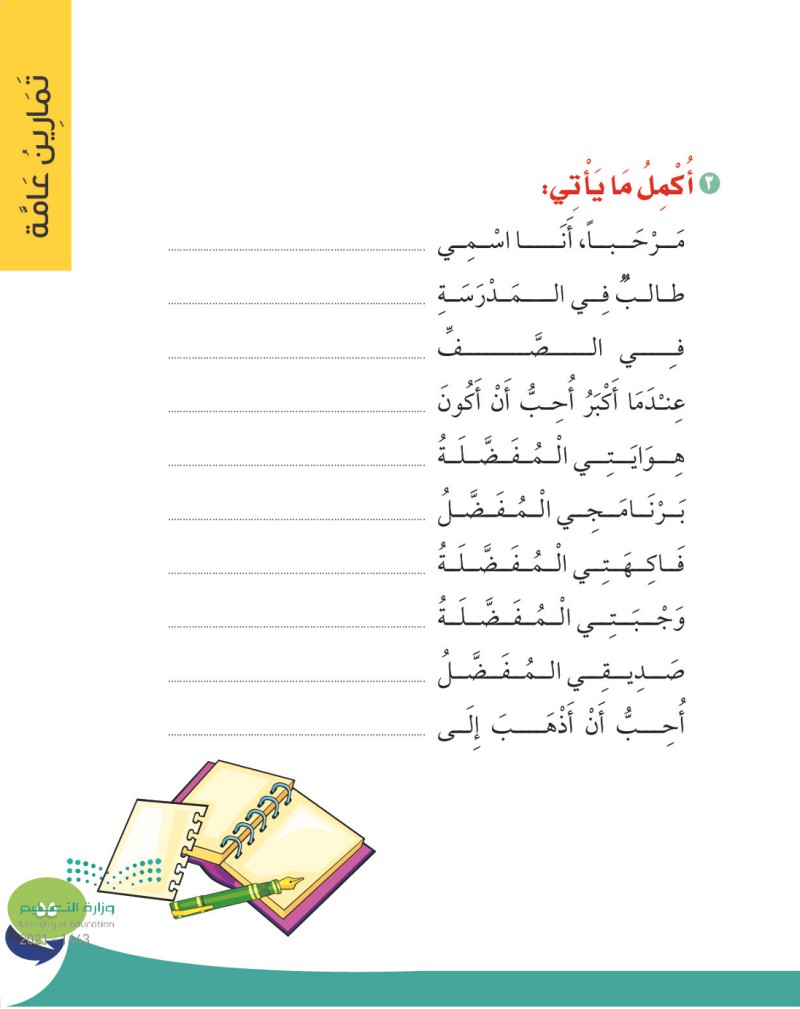 تَمَارِينُ عَامَّة
٣ أُكْمِلُ مَا يَأْتِي:
مَرْحَباً، أَنَا اسْمِي ........................
طالبٌ فِي الـمَدْرَسَةِ ........................
فِي الصَّفِّ ........................
عِنْدَمَا أَكْبَرُ أُحِبُّ أَنْ أَكُونَ ........................
هِوَايَتِي الْمُفَضَّلَةُ ........................
بَرْنَامَجِي الْمُفَضَّلُ ........................
فَاكِهَتِي الْمُفَضَّلَةُ ........................
وَجْبَتِي الْمُفَضَّلَةُ ........................
صَدِيقِي المُفَضَّلُ ........................
أُحِبُّ أَنْ أَذْهَبَ إِلَى ........................
وزارة التعليم
Ministry of Education
2021 - 1443